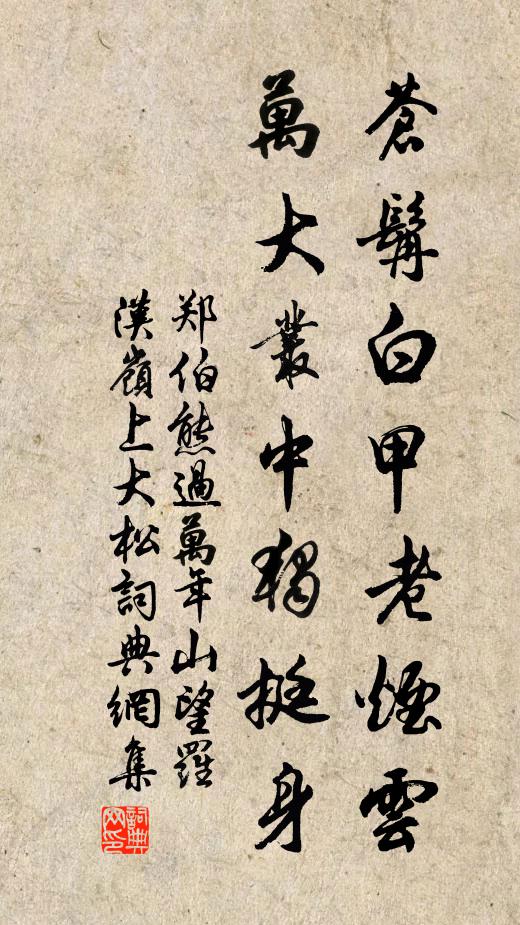 蒼髯白甲老煙雲
萬大叢中獨挺身
郑伯熊過萬年山望羅
漢嶺上大松詞典網集
詞典网印